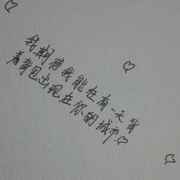 我期待我能在有一天背
着背包出现在你的城市